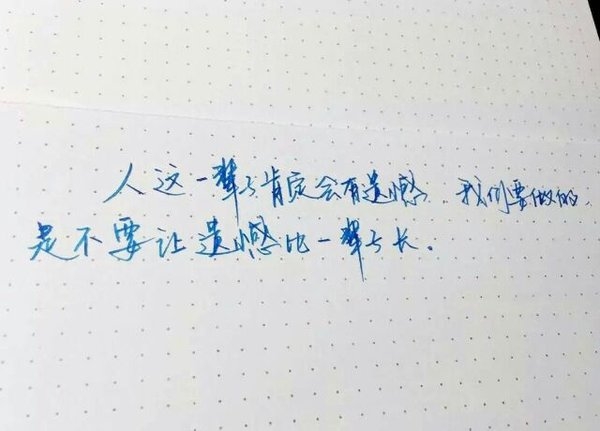 人这一辈子肯定会有遗憾.我们要做的,
是不要让遗憾比一辈子长.